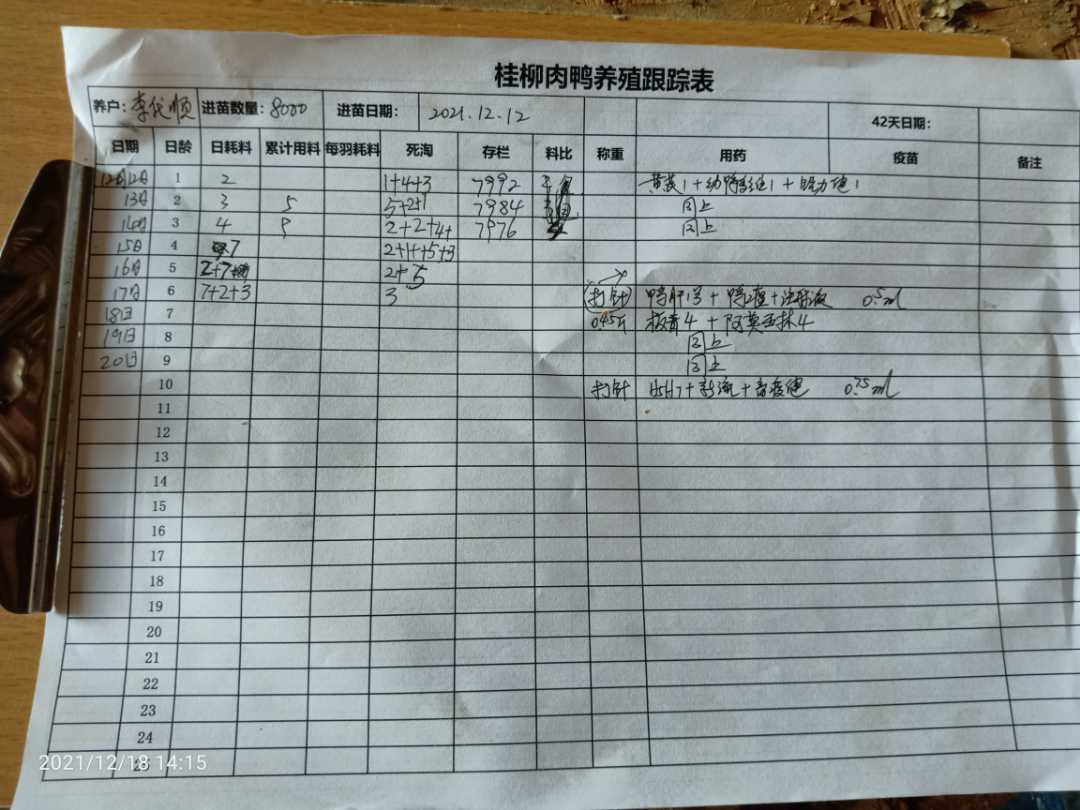 桂柳肉鸭养殖跟踪表
养户: 李代顺 进苗数量: 8000 进苗日期: 2021.12.12 42天日期:
日期 日龄 日耗料 累计用料 每羽耗料 死淘 存栏 料比 称重 用药 疫苗 备注
12月12日 1 2 1+4+3 7992
13日 2 3 5 5+2+1 7984 同上
14日 3 4 9 2+2+4+ 7976 同上
15日 4 7 2+1+5+3
16日 5 2+7 2+5
17日 6 7+2+3 3 (打针) 0.5ml
18日 7 0.45斤 板青4+阿莫西林4
19日 8 同上
20日 9 同上
10 打针 0.75ml
11
12
13
14
15
16
17
18
19
20
21
22
23
24
25
2021/12/18 14:15